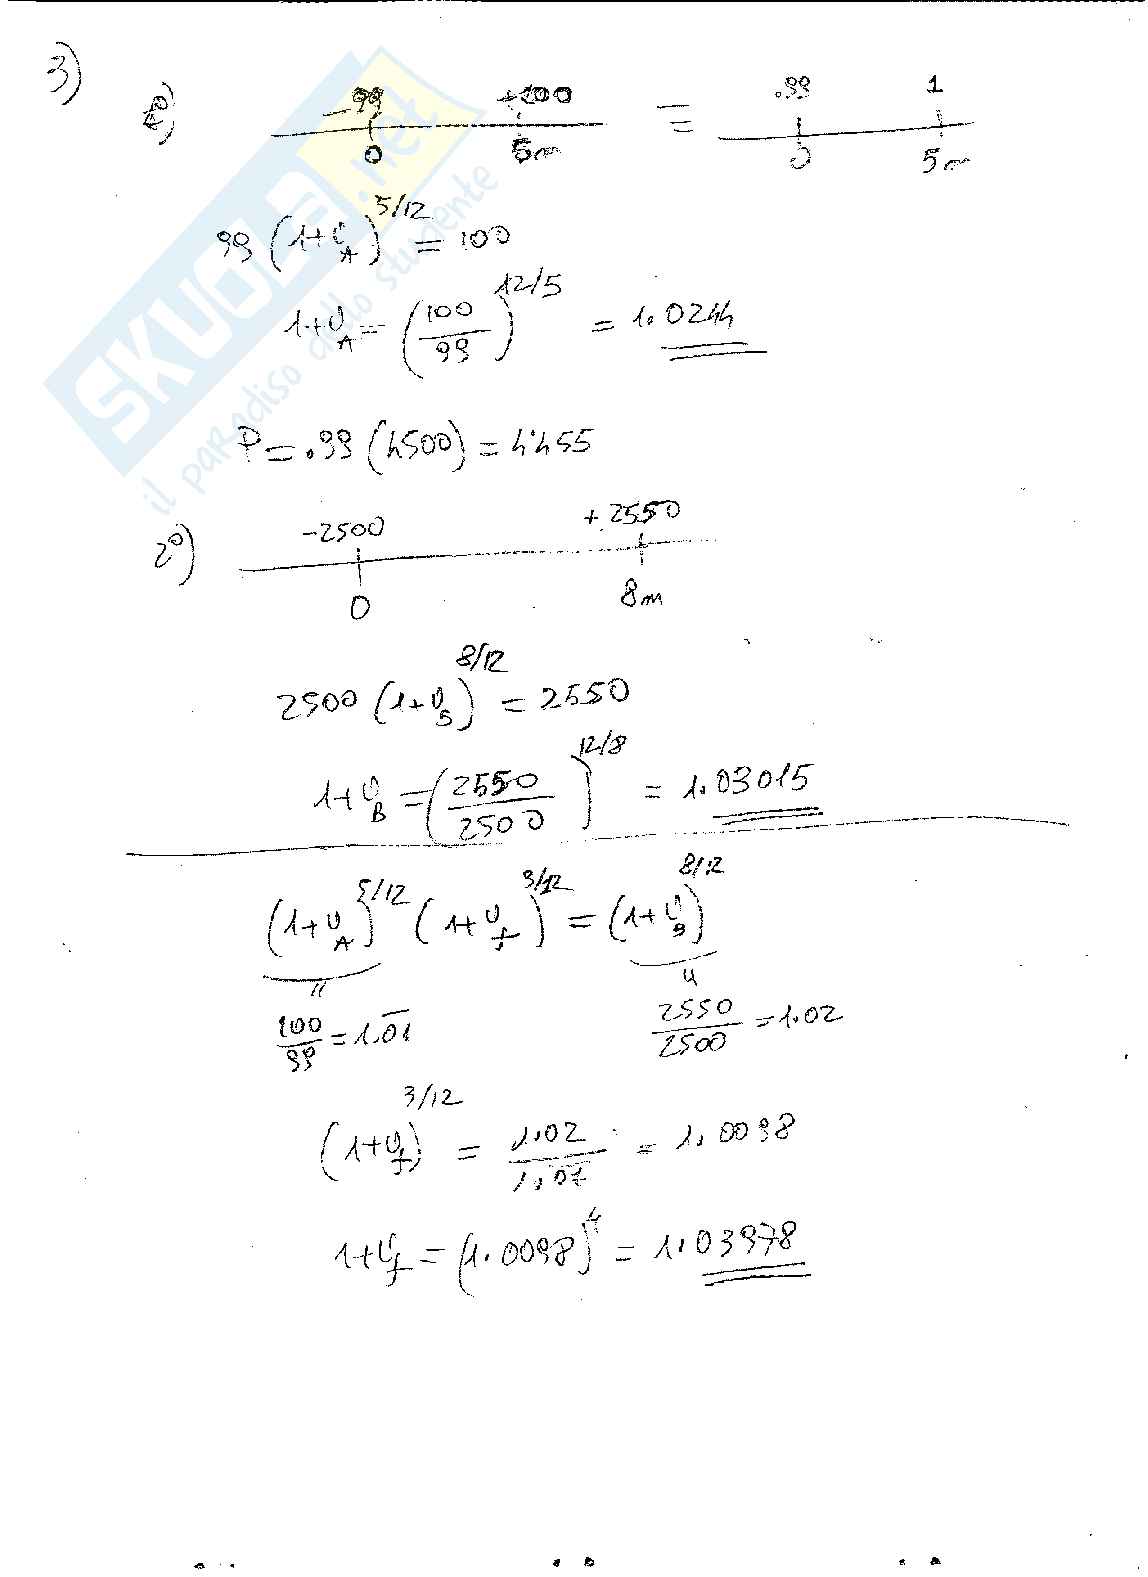 3)
1°)
-99 +100 = .99 1
0 5m 0 5m
99 (1+i_A)^{5/12} = 100
1+i_A = (100/99)^{12/5} = 1.0244
P = .99 (4500) = 4'455
2°)
-2500 +2550
0 8m
2500 (1+i_B)^{8/12} = 2550
1+i_B = (2550/2500)^{12/8} = 1.03015
(1+i_A)^{5/12} (1+i_f)^{3/12} = (1+i_B)^{8/12}
100/99 = 1.0̅1̅ 2550/2500 = 1.02
(1+i_f)^{3/12} = 1.02/1.01 = 1.0098
1+i_f = (1.0098)^4 = 1.03978
SKUOLA.net
il paradiso dello studente